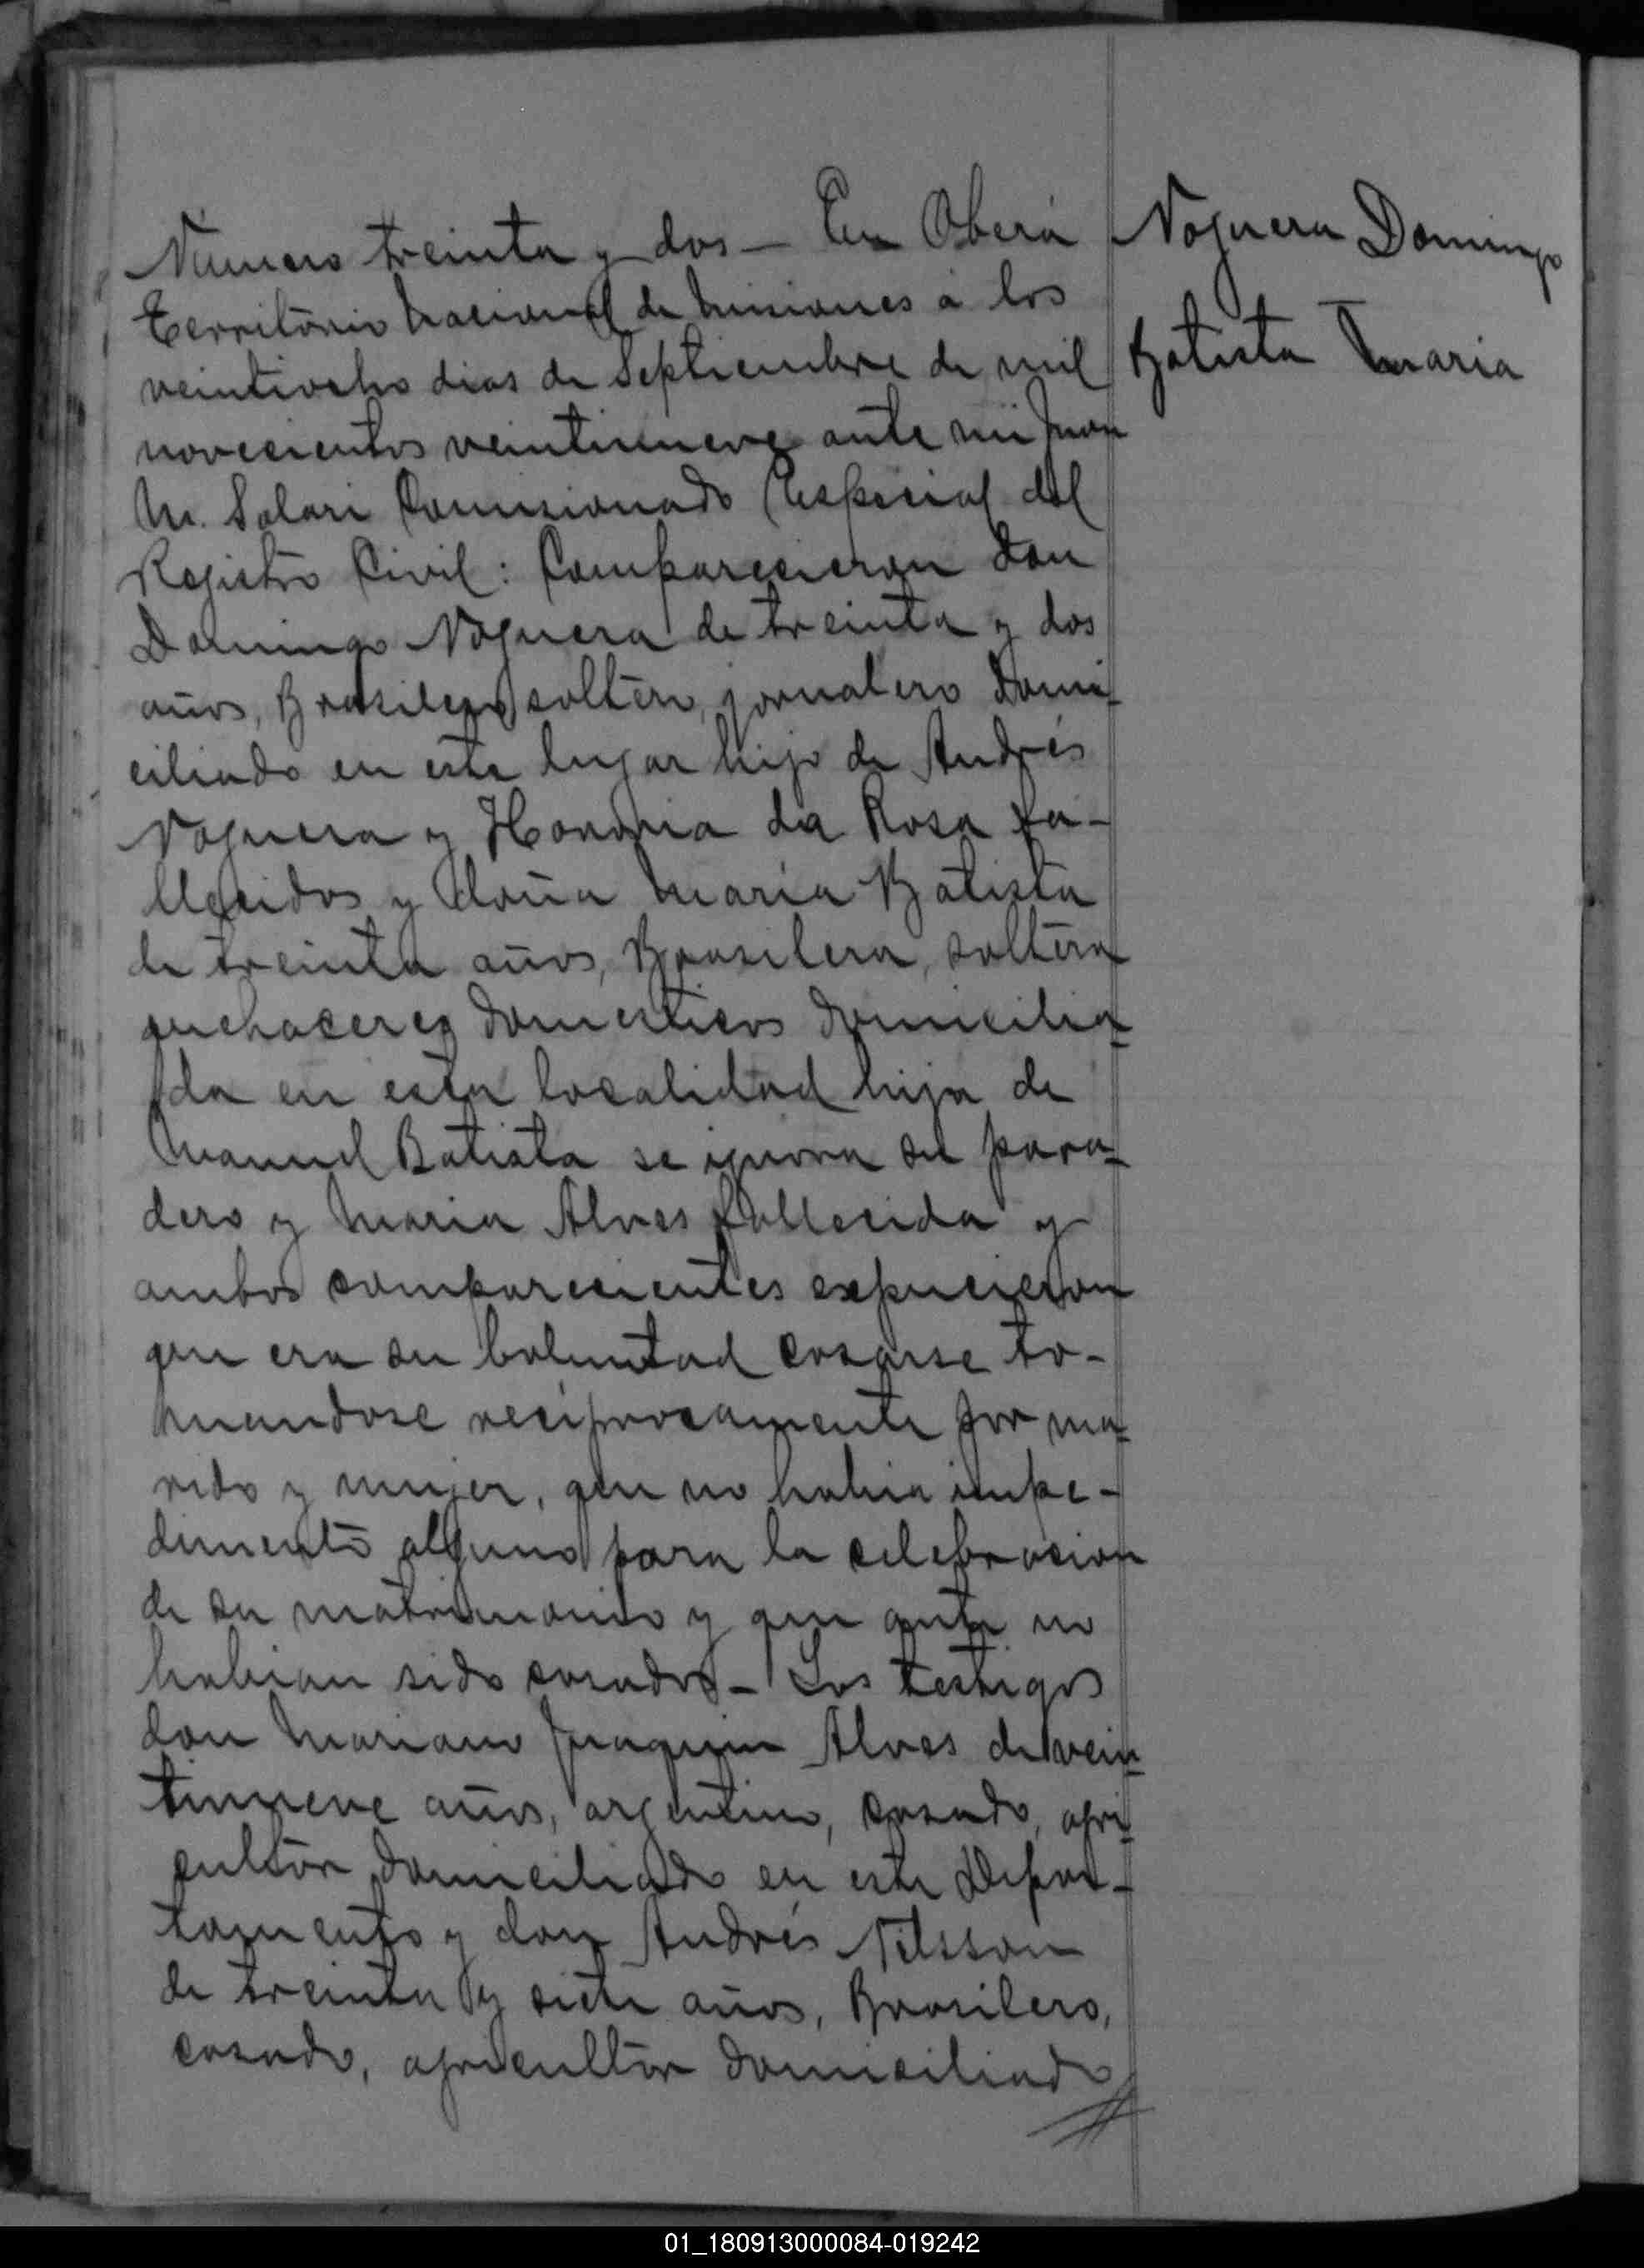 Número treinta y dos — En Oberá
Território Nacional de Misiones á los
veintiocho dias de Septiembre de mil
novecientos veintinueve ante mi Juan
M. Solari Comisionado Especial del
Registro Civil: Comparecieron don
Domingo Noguera de treinta y dos
años, Brasilero, soltero, jornalero domi-
ciliado en este lugar hijo de Andrés
Noguera y Honoria da Rosa fa-
llecidos y doña María Batista
de treinta años, Brasilera, soltera
quehaceres domesticos domicilia-
da en esta localidad hija de
Manuel Batista se ignora su para-
dero y Maria Alves fallecida y
ambos comparecientes expucieron
que era su boluntad casarse to-
mandose reciprocamente por ma-
rido y mujer, que no habia impe-
dimento alguno para la celebracion
de su matrimonio y que ante no
habian sido casados — Los testigos
don Mariano Juaquin Alves de vein-
tinueve años, argentino, casado, agri-
cultor domiciliado en este Depar-
tamento y don Andrés Nilsson
de treinta y siete años, Brasilero,
casado, agricultor domiciliado //
Noguera Domingo
Batista Maria
01_180913000084-019242